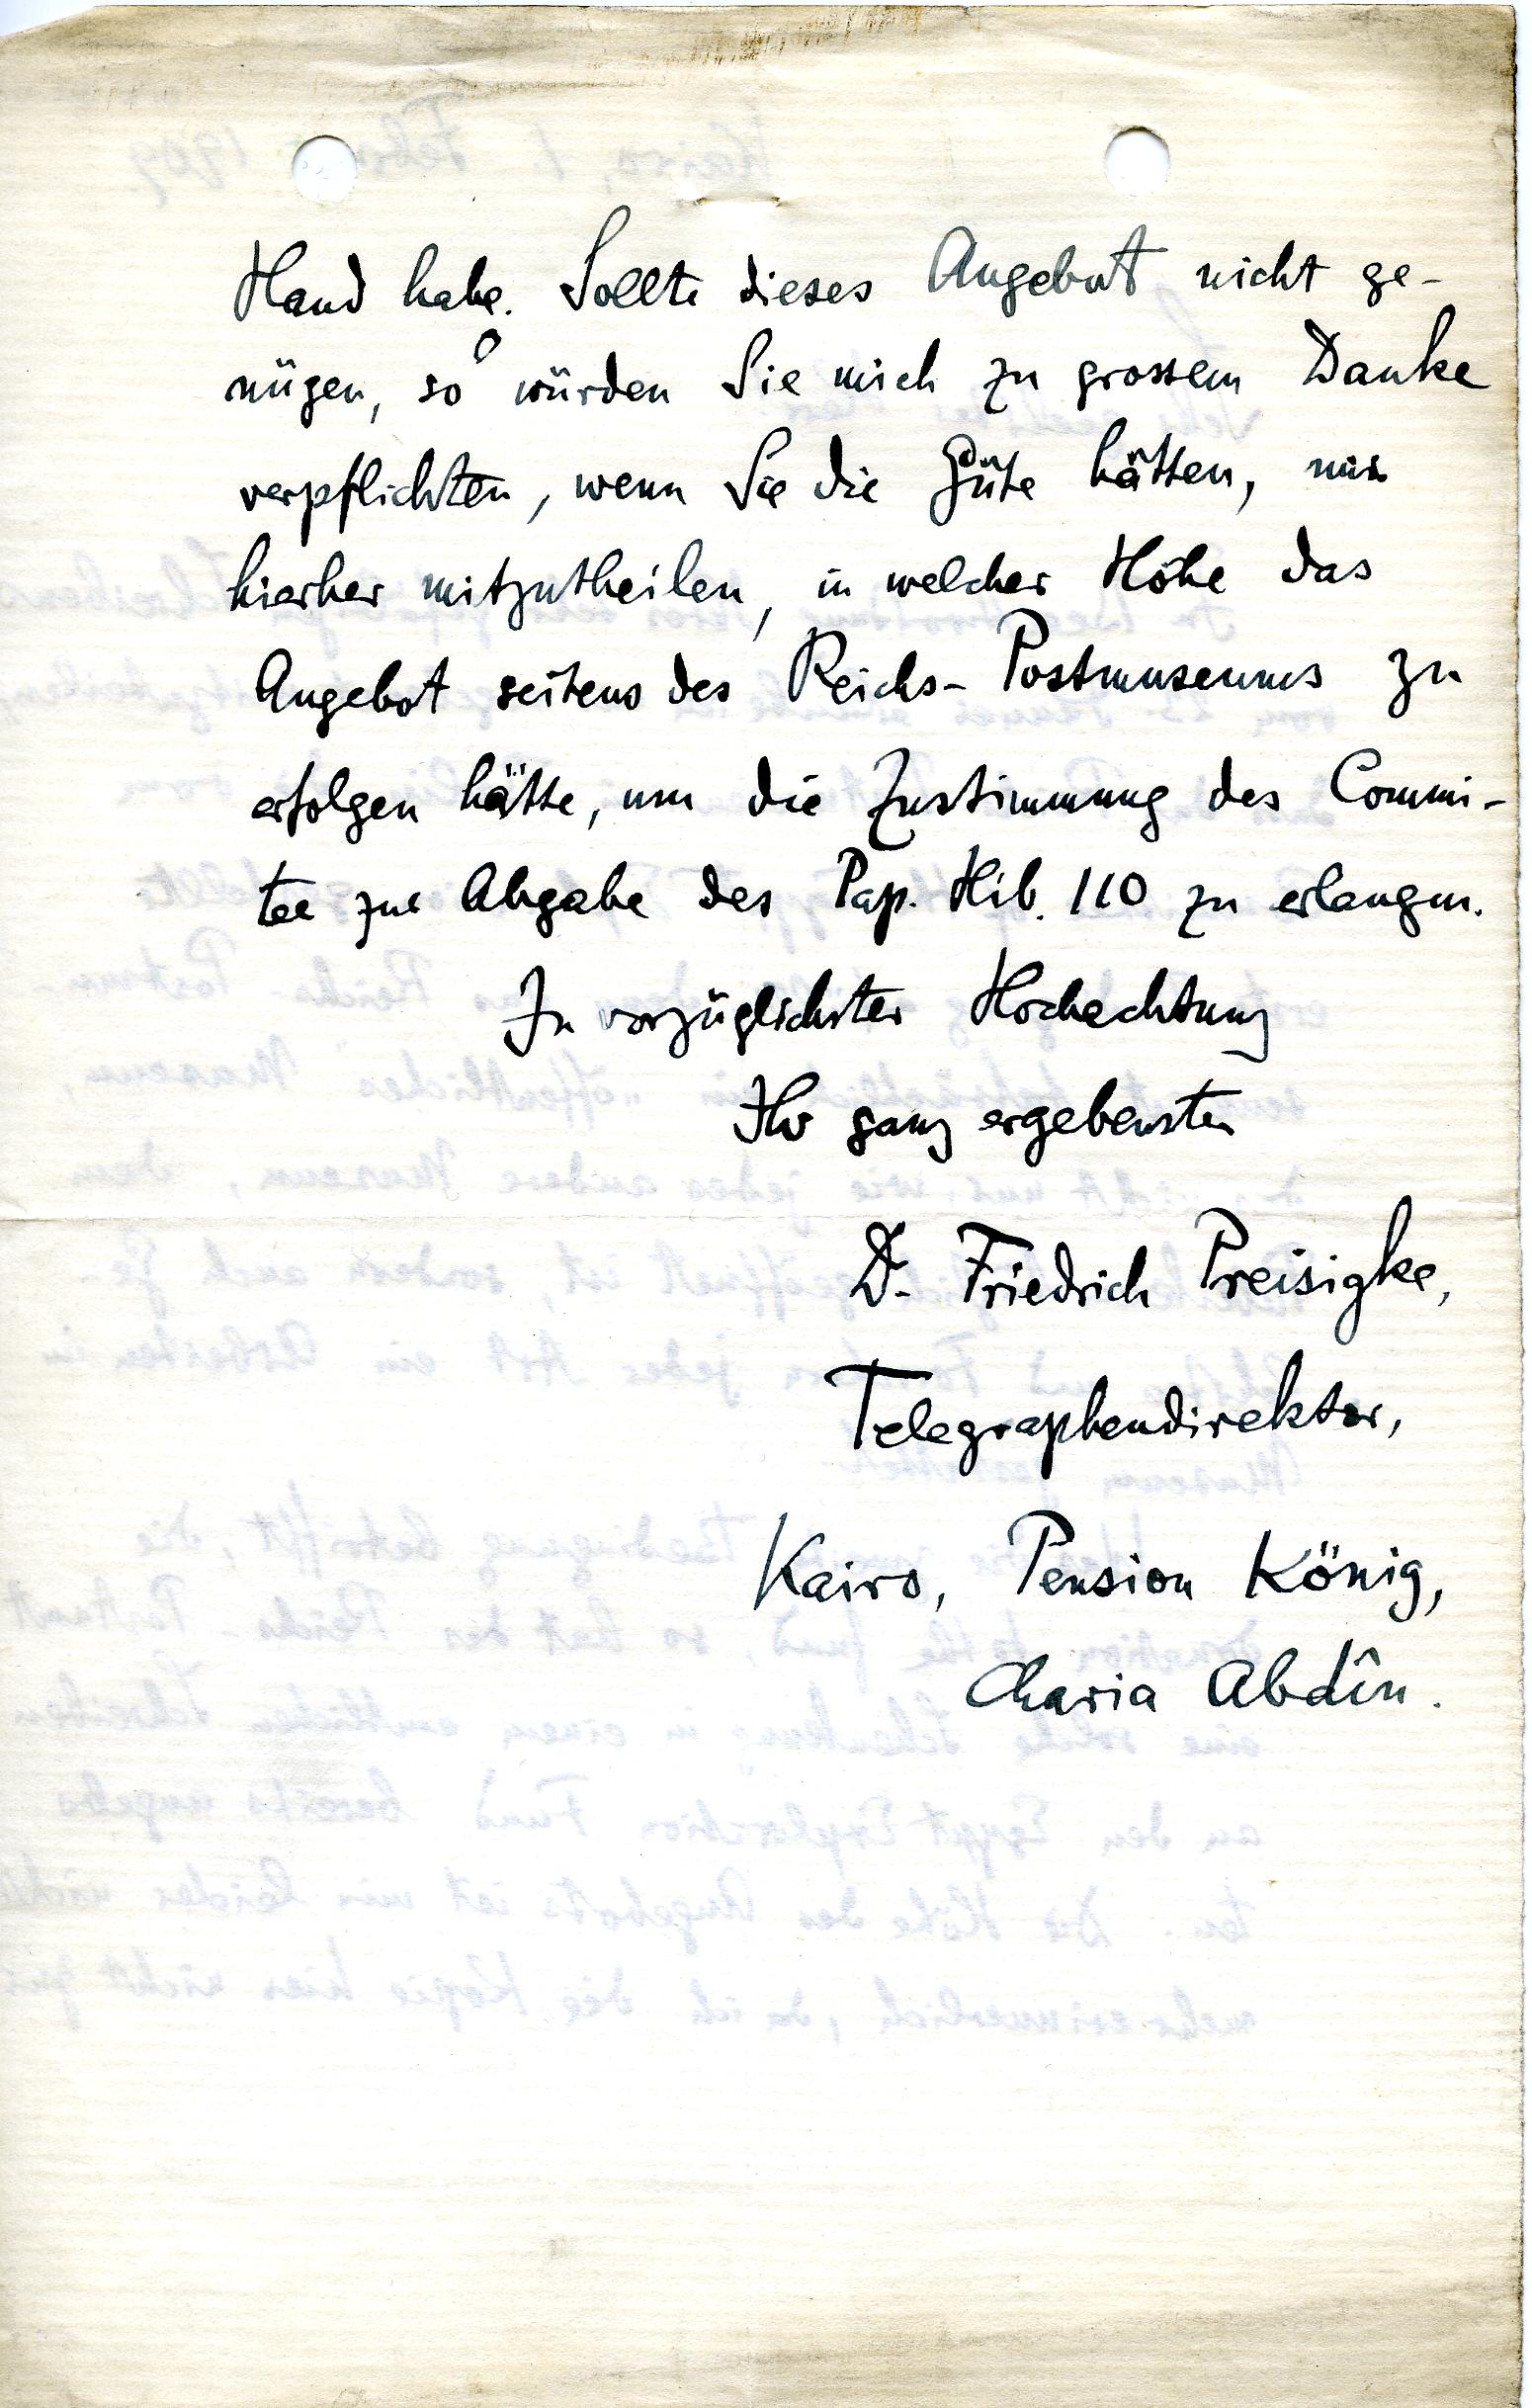 Hand habe. Sollte dieses Angebot nicht ge-
nügen, so würden Sie mich zu grossem Danke
verpflichten, wenn Sie die Güte hätten, mir
hierher mitzutheilen, in welcher Höhe das
Angebot seitens des Reichs-Postmuseums zu
erfolgen hätte, um die Zustimmung des Commi-
tee zur Abgabe des Pap. Hib. 110 zu erlangen.
In vorzüglichster Hochachtung
Ihr ganz ergebenster
Dr. Friedrich Preisigke,
Telegraphendirektor,
Kairo, Pension König,
Charia Abdîn.